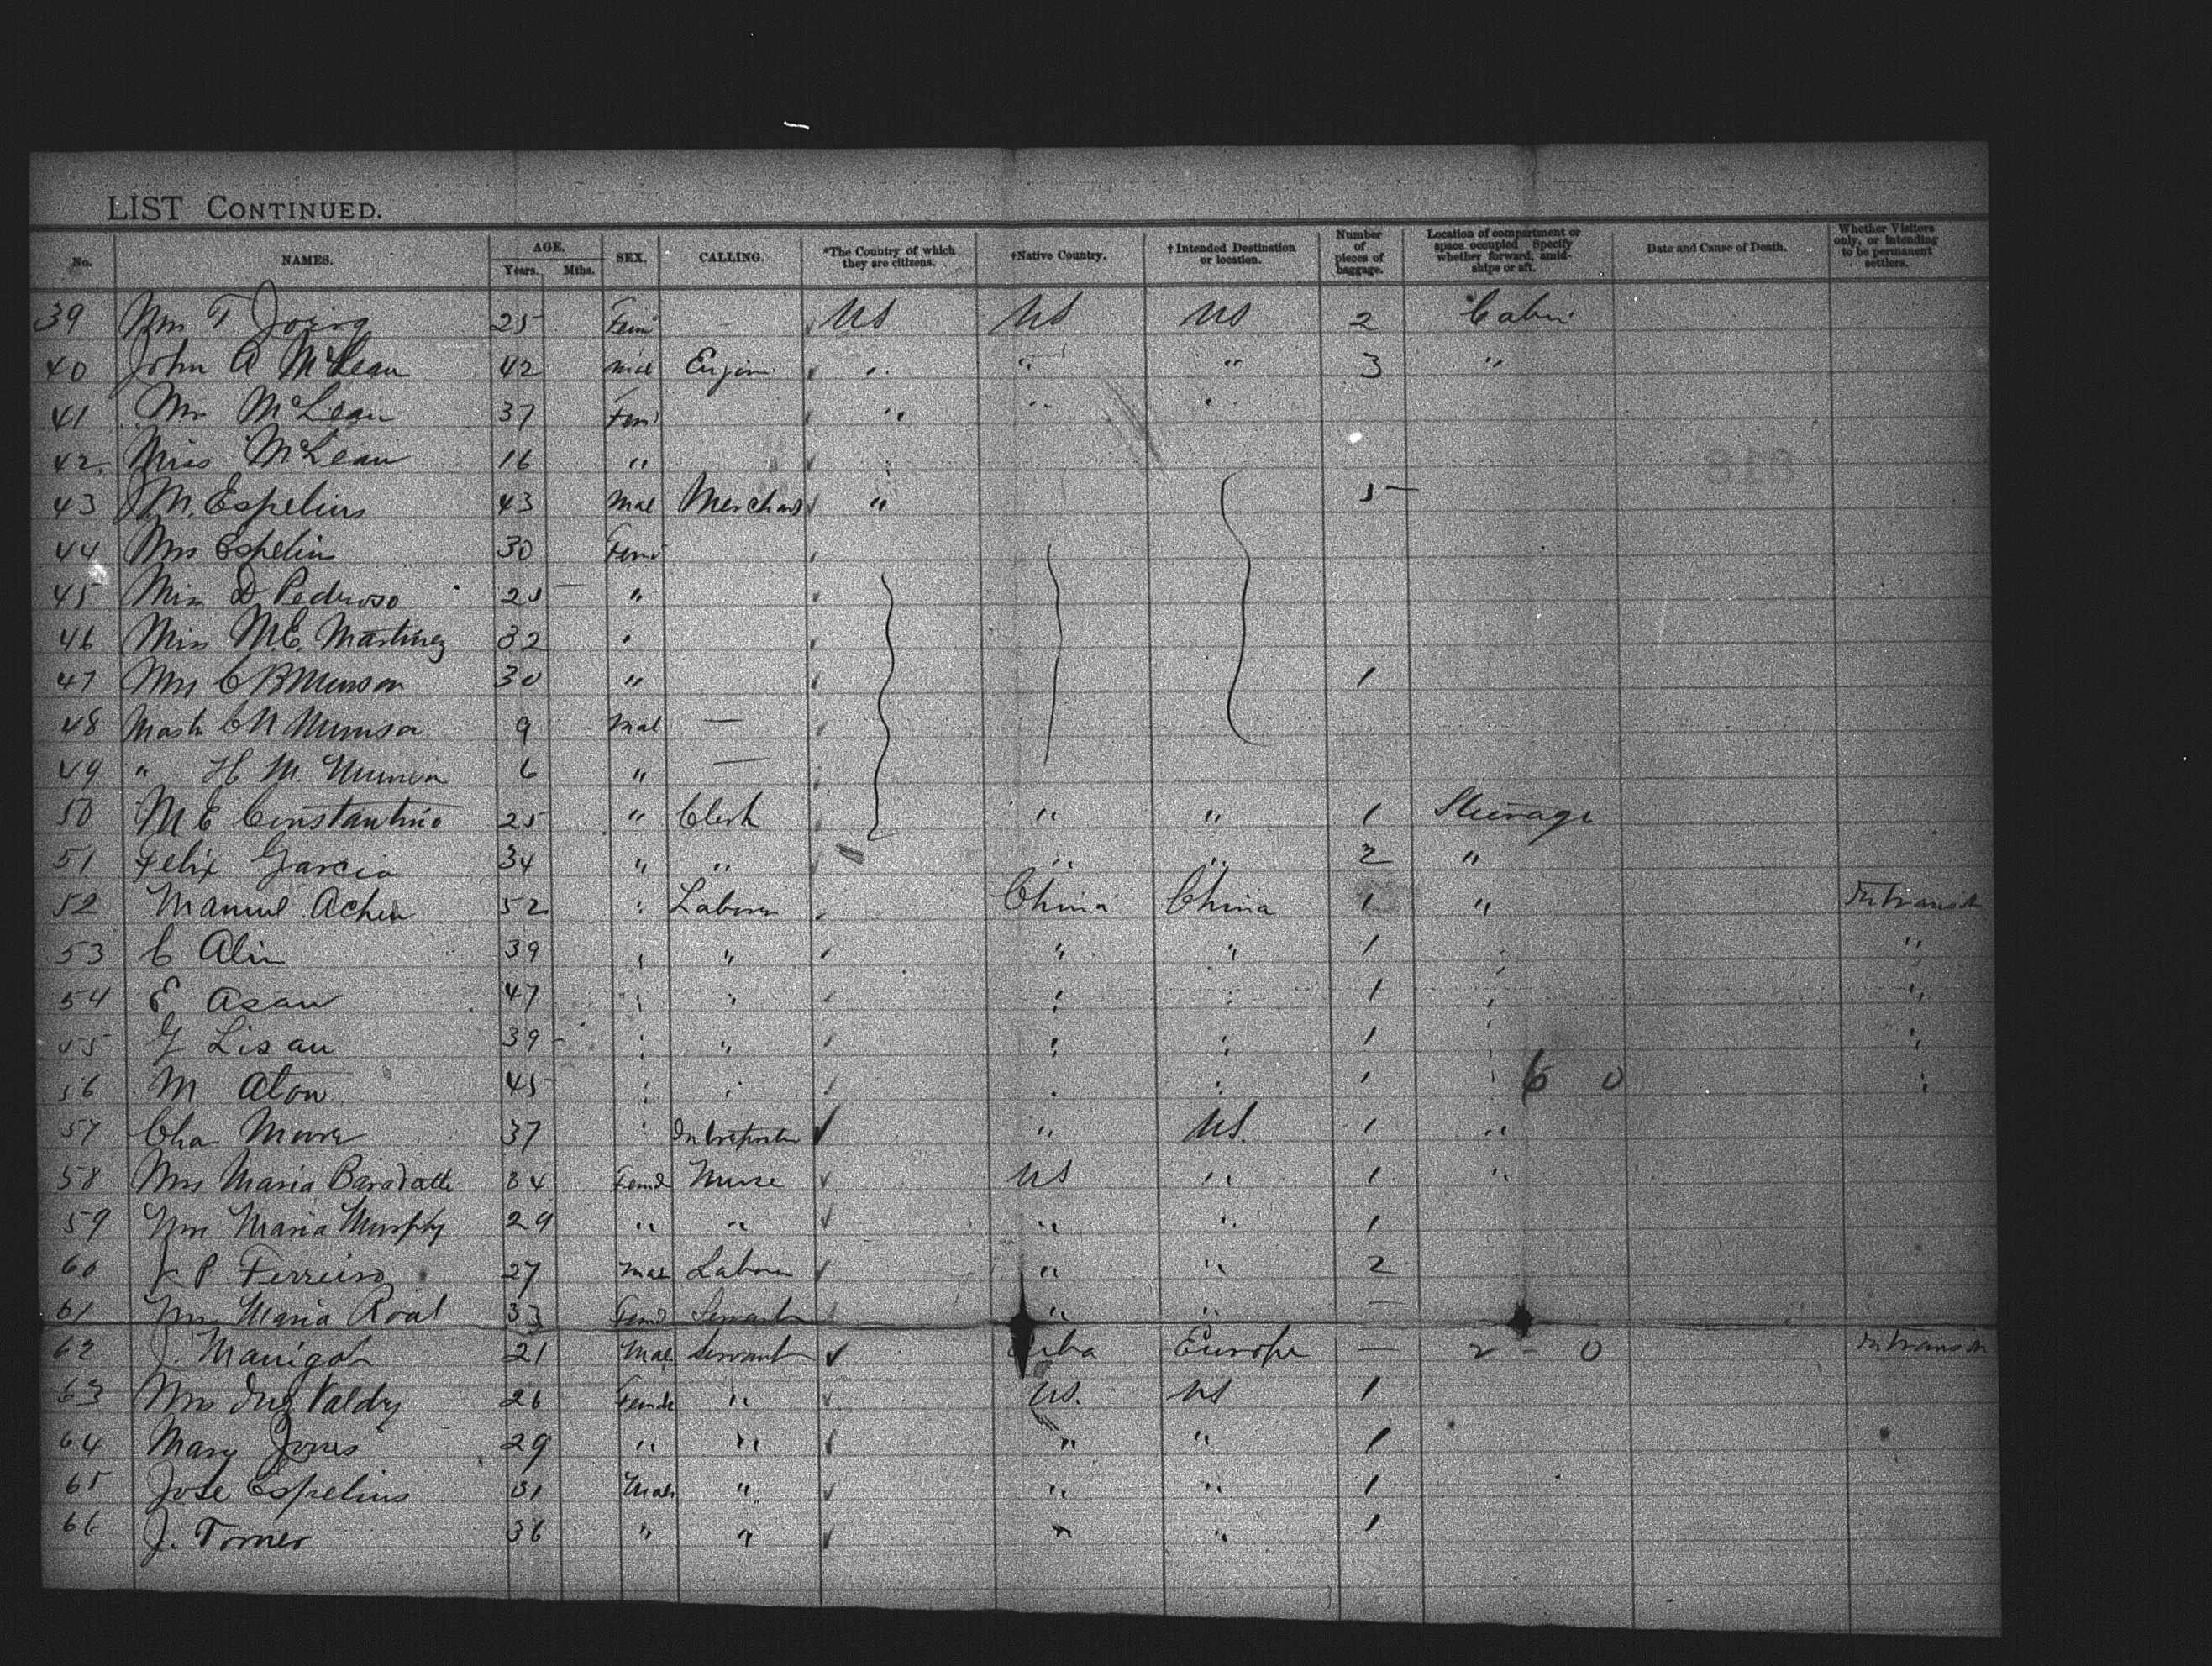 LIST CONTINUED.
No. NAMES. AGE. Years. Mths. SEX. CALLING. *The Country of which they are citizens. †Native Country. †Intended Destination or location. Number of pieces of baggage. Location of compartment or space occupied Specify whether forward, amidships or aft. Date and Cause of Death. Whether Visitors only, or intending to be permanent settlers.
39 Mrs T. 25 Fem US US US 2 Cabin
40 John A McLean 42 Mal Engin " " " 3 "
41 Mrs McLean 37 Fem " " "
42. Miss McLean 16 "
43 M. Espelius 43 Mal Merchant " 5
44 Mrs Espelius 30 Fem
45 Miss D Pedroso 25 "
46 Miss M.E. Martinez 32 "
47 Mrs C B Munson 30 " 1
48 Mastr C N Munson 9 Mal —
49 " H M Munson 6 " —
50 M E Constantino 25 " Clerk " " 1 Steerage
51 Felix Garcia 34 " " " " 2 "
52 Manuel Achen 52 " Laborer China China 1 " In transit
53 C Alin 39 " " " " 1 " "
54 E Asau 47 " " " " 1 " "
55 Lisau 39 " " " " 1 " "
56 M Aton 45 " " " " 1 " 6 0 "
57 Cha Moore 37 " Interpreter " US. 1 "
58 Mrs Maria 34 Femd Nurse US " 1 "
59 Mrs Maria Murphy 29 " " " " 1
60 J P Ferreiro 27 Mal Labore " " 2
61 Mrs Maria Roal 33 Femd Servant " " —
62 J. Manigat 21 Mal Servant Cuba Europe — 2 - 0 In transit
63 Mrs Valdez 26 Femde " US. US 1
64 Mary Jones 29 " " " " 1
65 Jose Espelius 31 Male " " " 1
66 J. Torner 36 " " " " 1